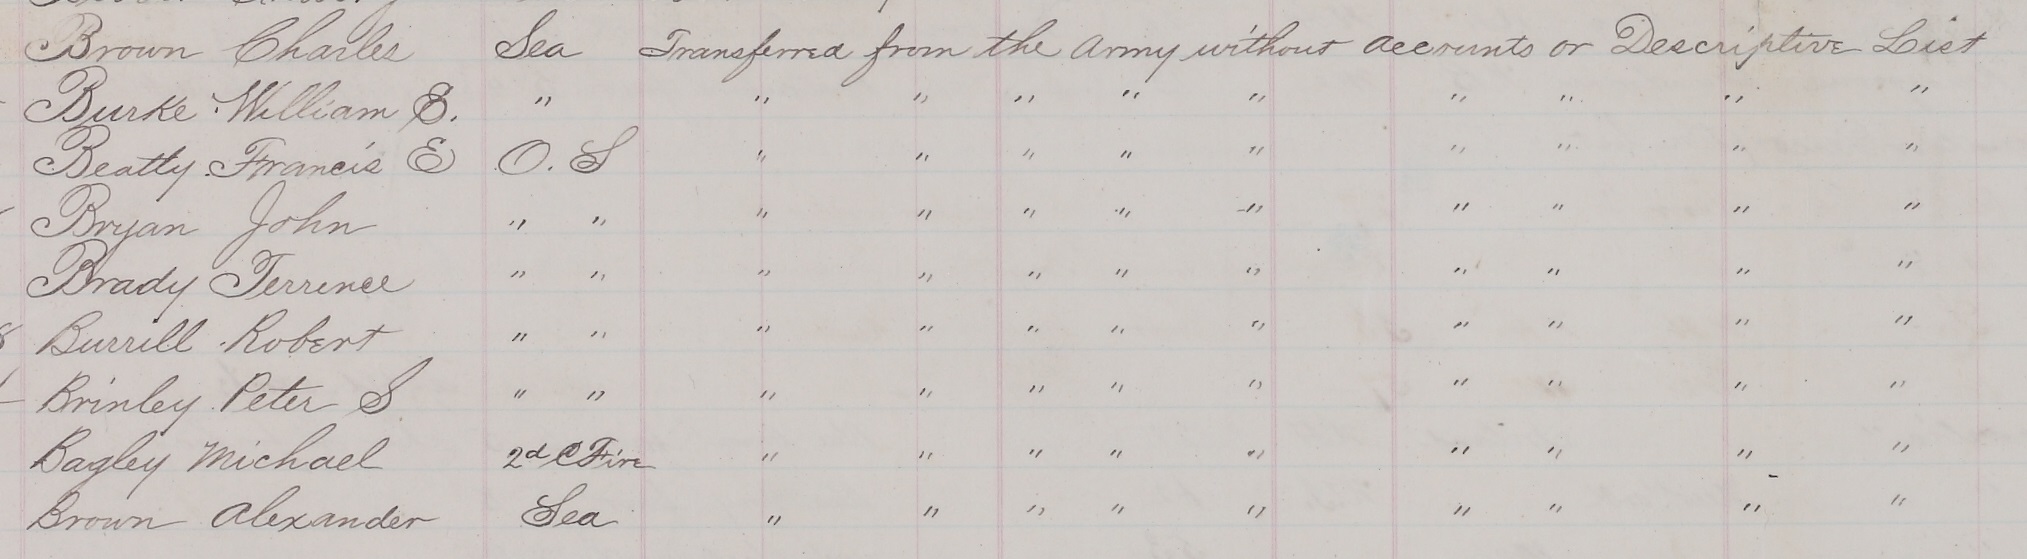 Brown Charles Sea Transferred from the Army without accounts or Descriptive List
Burke William E. " " " " " " " " " "
Beatty Francis E O. S " " " " " " " " "
Bryan John " " " " " " " " " " "
Brady Terrence " " " " " " " " " " "
Burrill Robert " " " " " " " " " " "
Brinley Peter S " " " " " " " " " " "
Bagley Michael 2d C Fire " " " " " " " " "
Brown Alexander Sea " " " " " " " " "